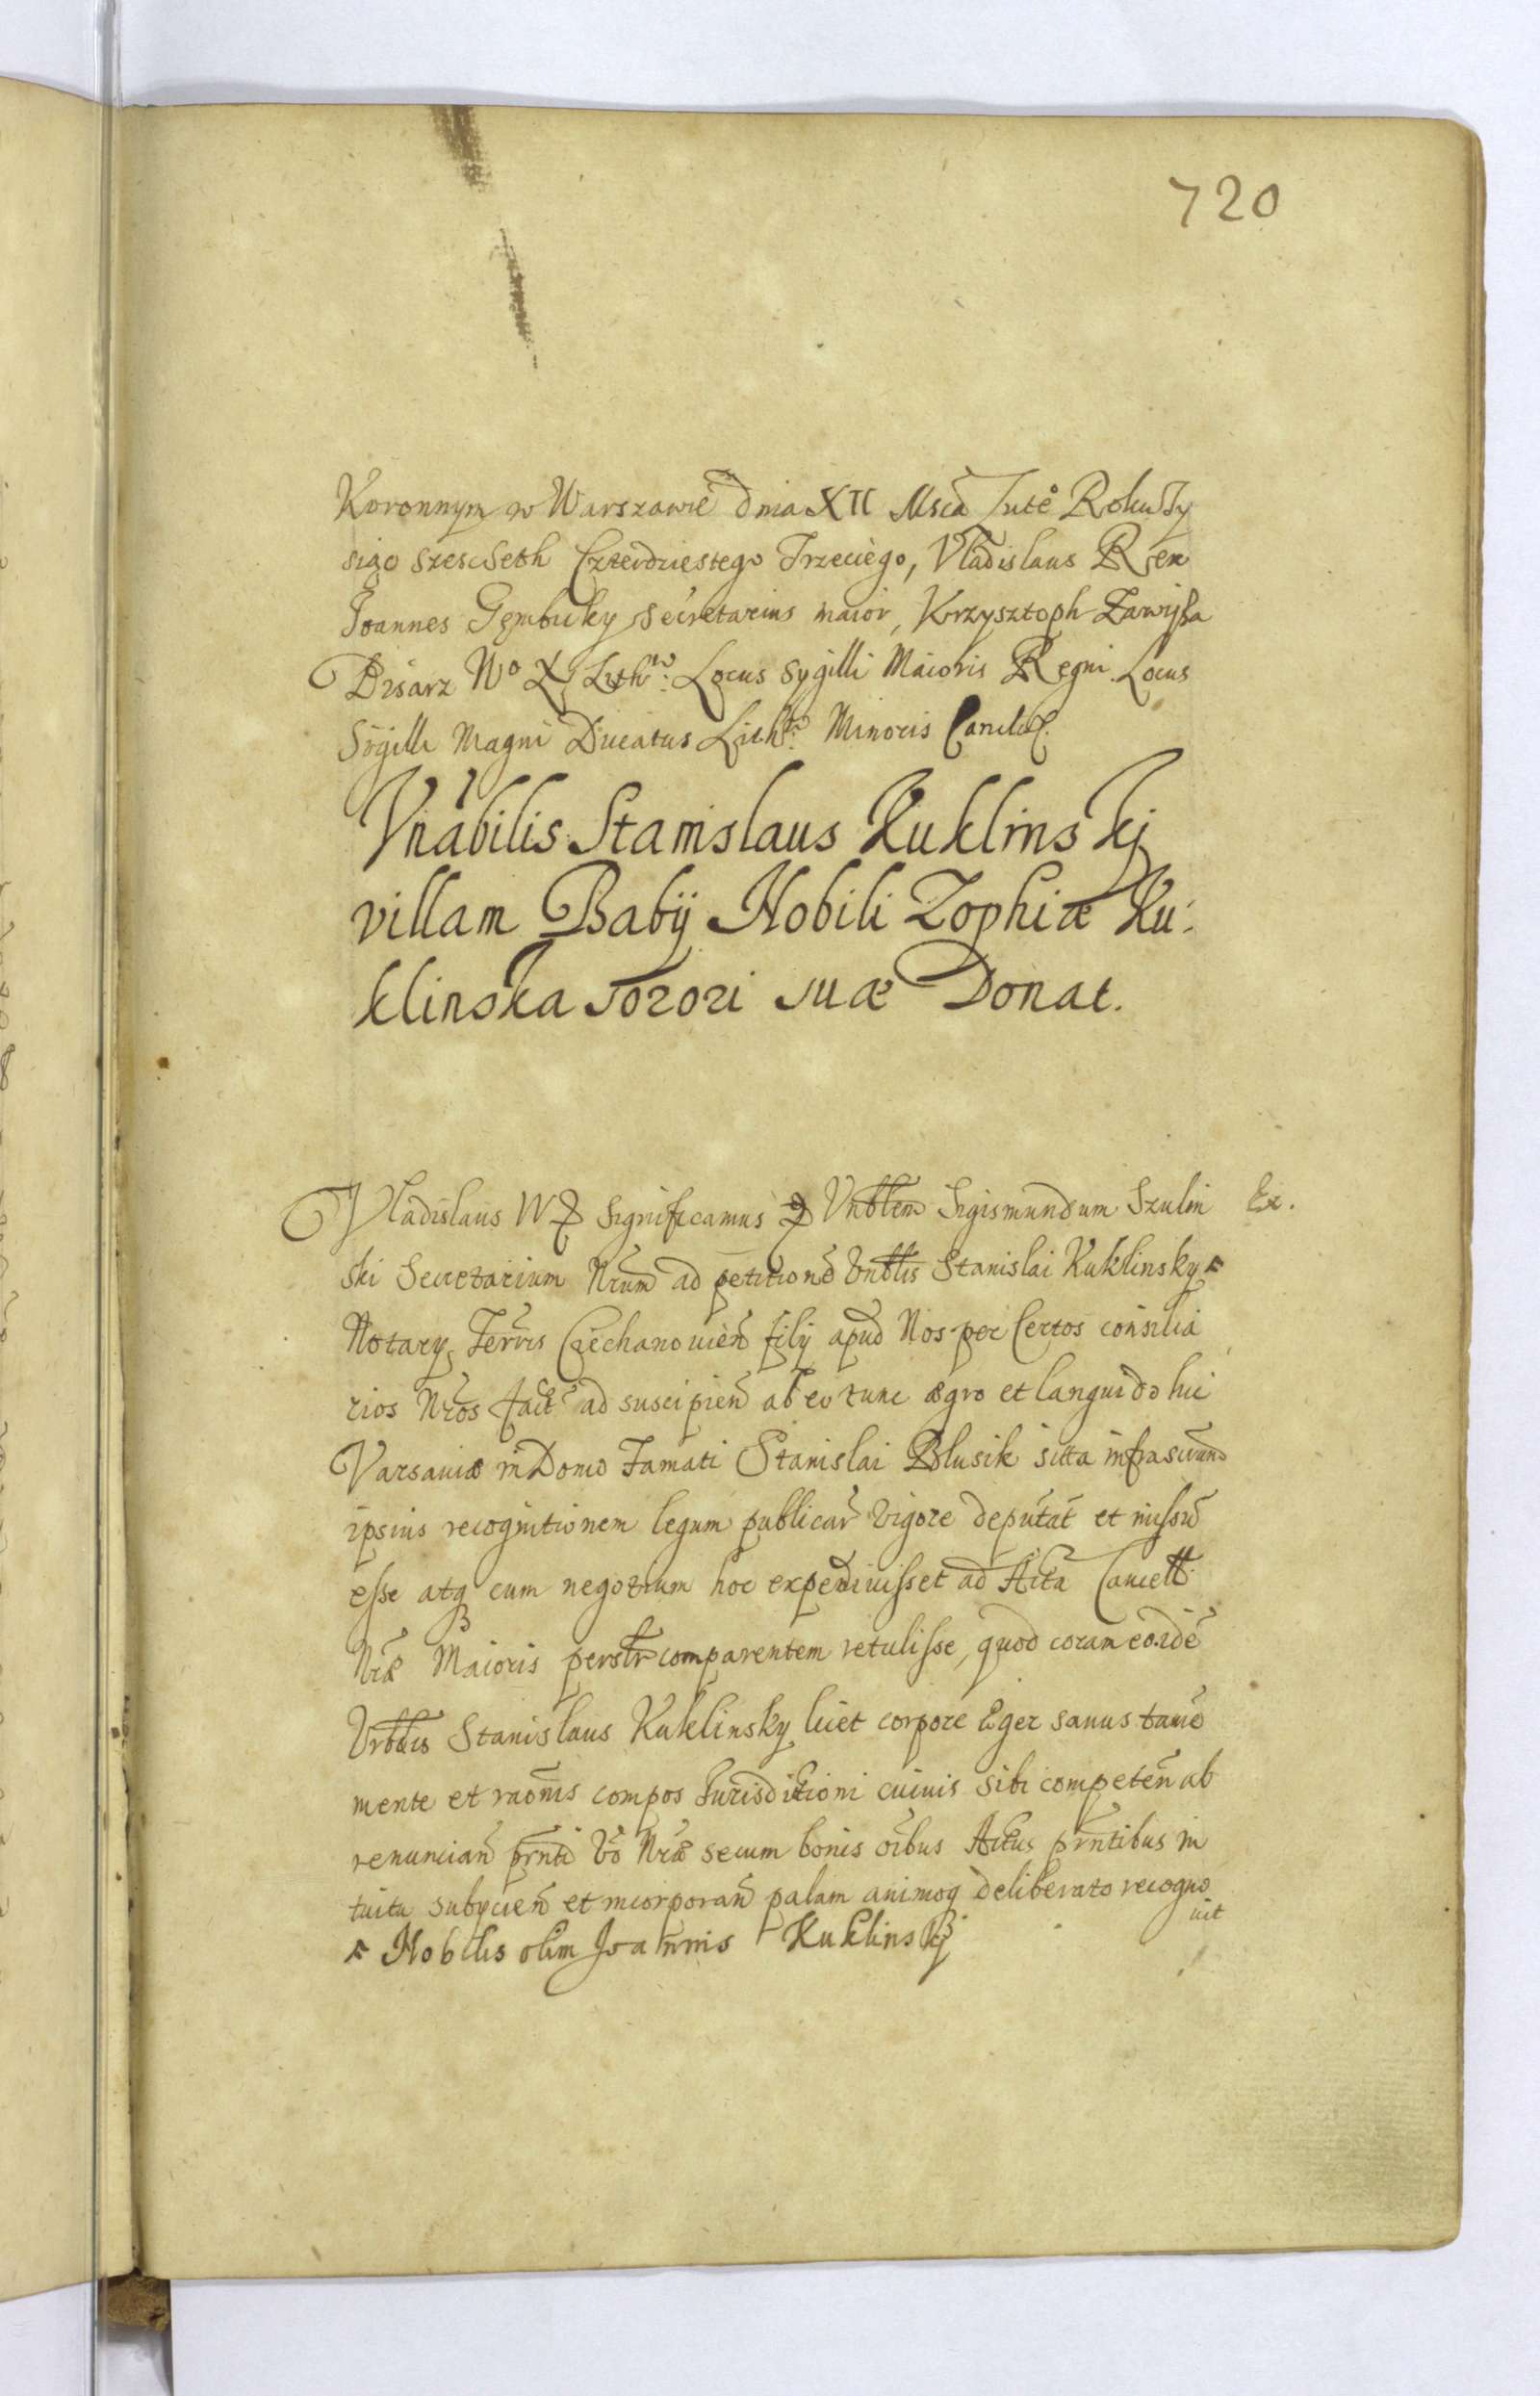 720
Koronnym w Warszawie dnia XII Msca Lute° Roku Ty
siąo szescseth Czterdziestego Trzeciego, Vladislaus Rex
Joannes Gęmbicky secretarius maior, Krzysztoph Zawißa
Pisarz W° X Lith: Locus sygilli Maioris Regni. Locus
Sigilli Magni Ducatus Lith: Minoris Cancel.
Vnabilis Stanislaus Kuklinskj
villam Babÿ Nobili Zophiæ Ku:
klinska sorori suæ Donat.
Vladislaus IV Significamus Vnblem Sigismundum Szulin Ex.
ski Secretarium Nrum ad petitione Vnblis Stanislai Kuklinsky
Notary Terris Ciechanouien filij apud Nos per Certos consilia
rios Nros fact ad suscipien ab eo tunc ægro et languido hic
Varsauiæ in Domo Famati Stanislai Blusik sitta infrascran
ipsius recognitionem legum publicar vigore deputat et missu
esse atq cum negotium hoc expediuisset ad Acta Cancell
Nræ Maioris perslr comparentem retulisse, quod coram eodē
Vnblis Stanislaus Kuklinsky licet corpore Eger sanus tamē
mente et raonis compos Jurisdictioni cuiuis sibi competen ab
renuncian prnti Vo Nræ secum bonis oibus Actus prntibus in
tuitu subycien et incorporan palam animoq deliberato recogno
uit
Nobilis olim Joannis Kuklinskj